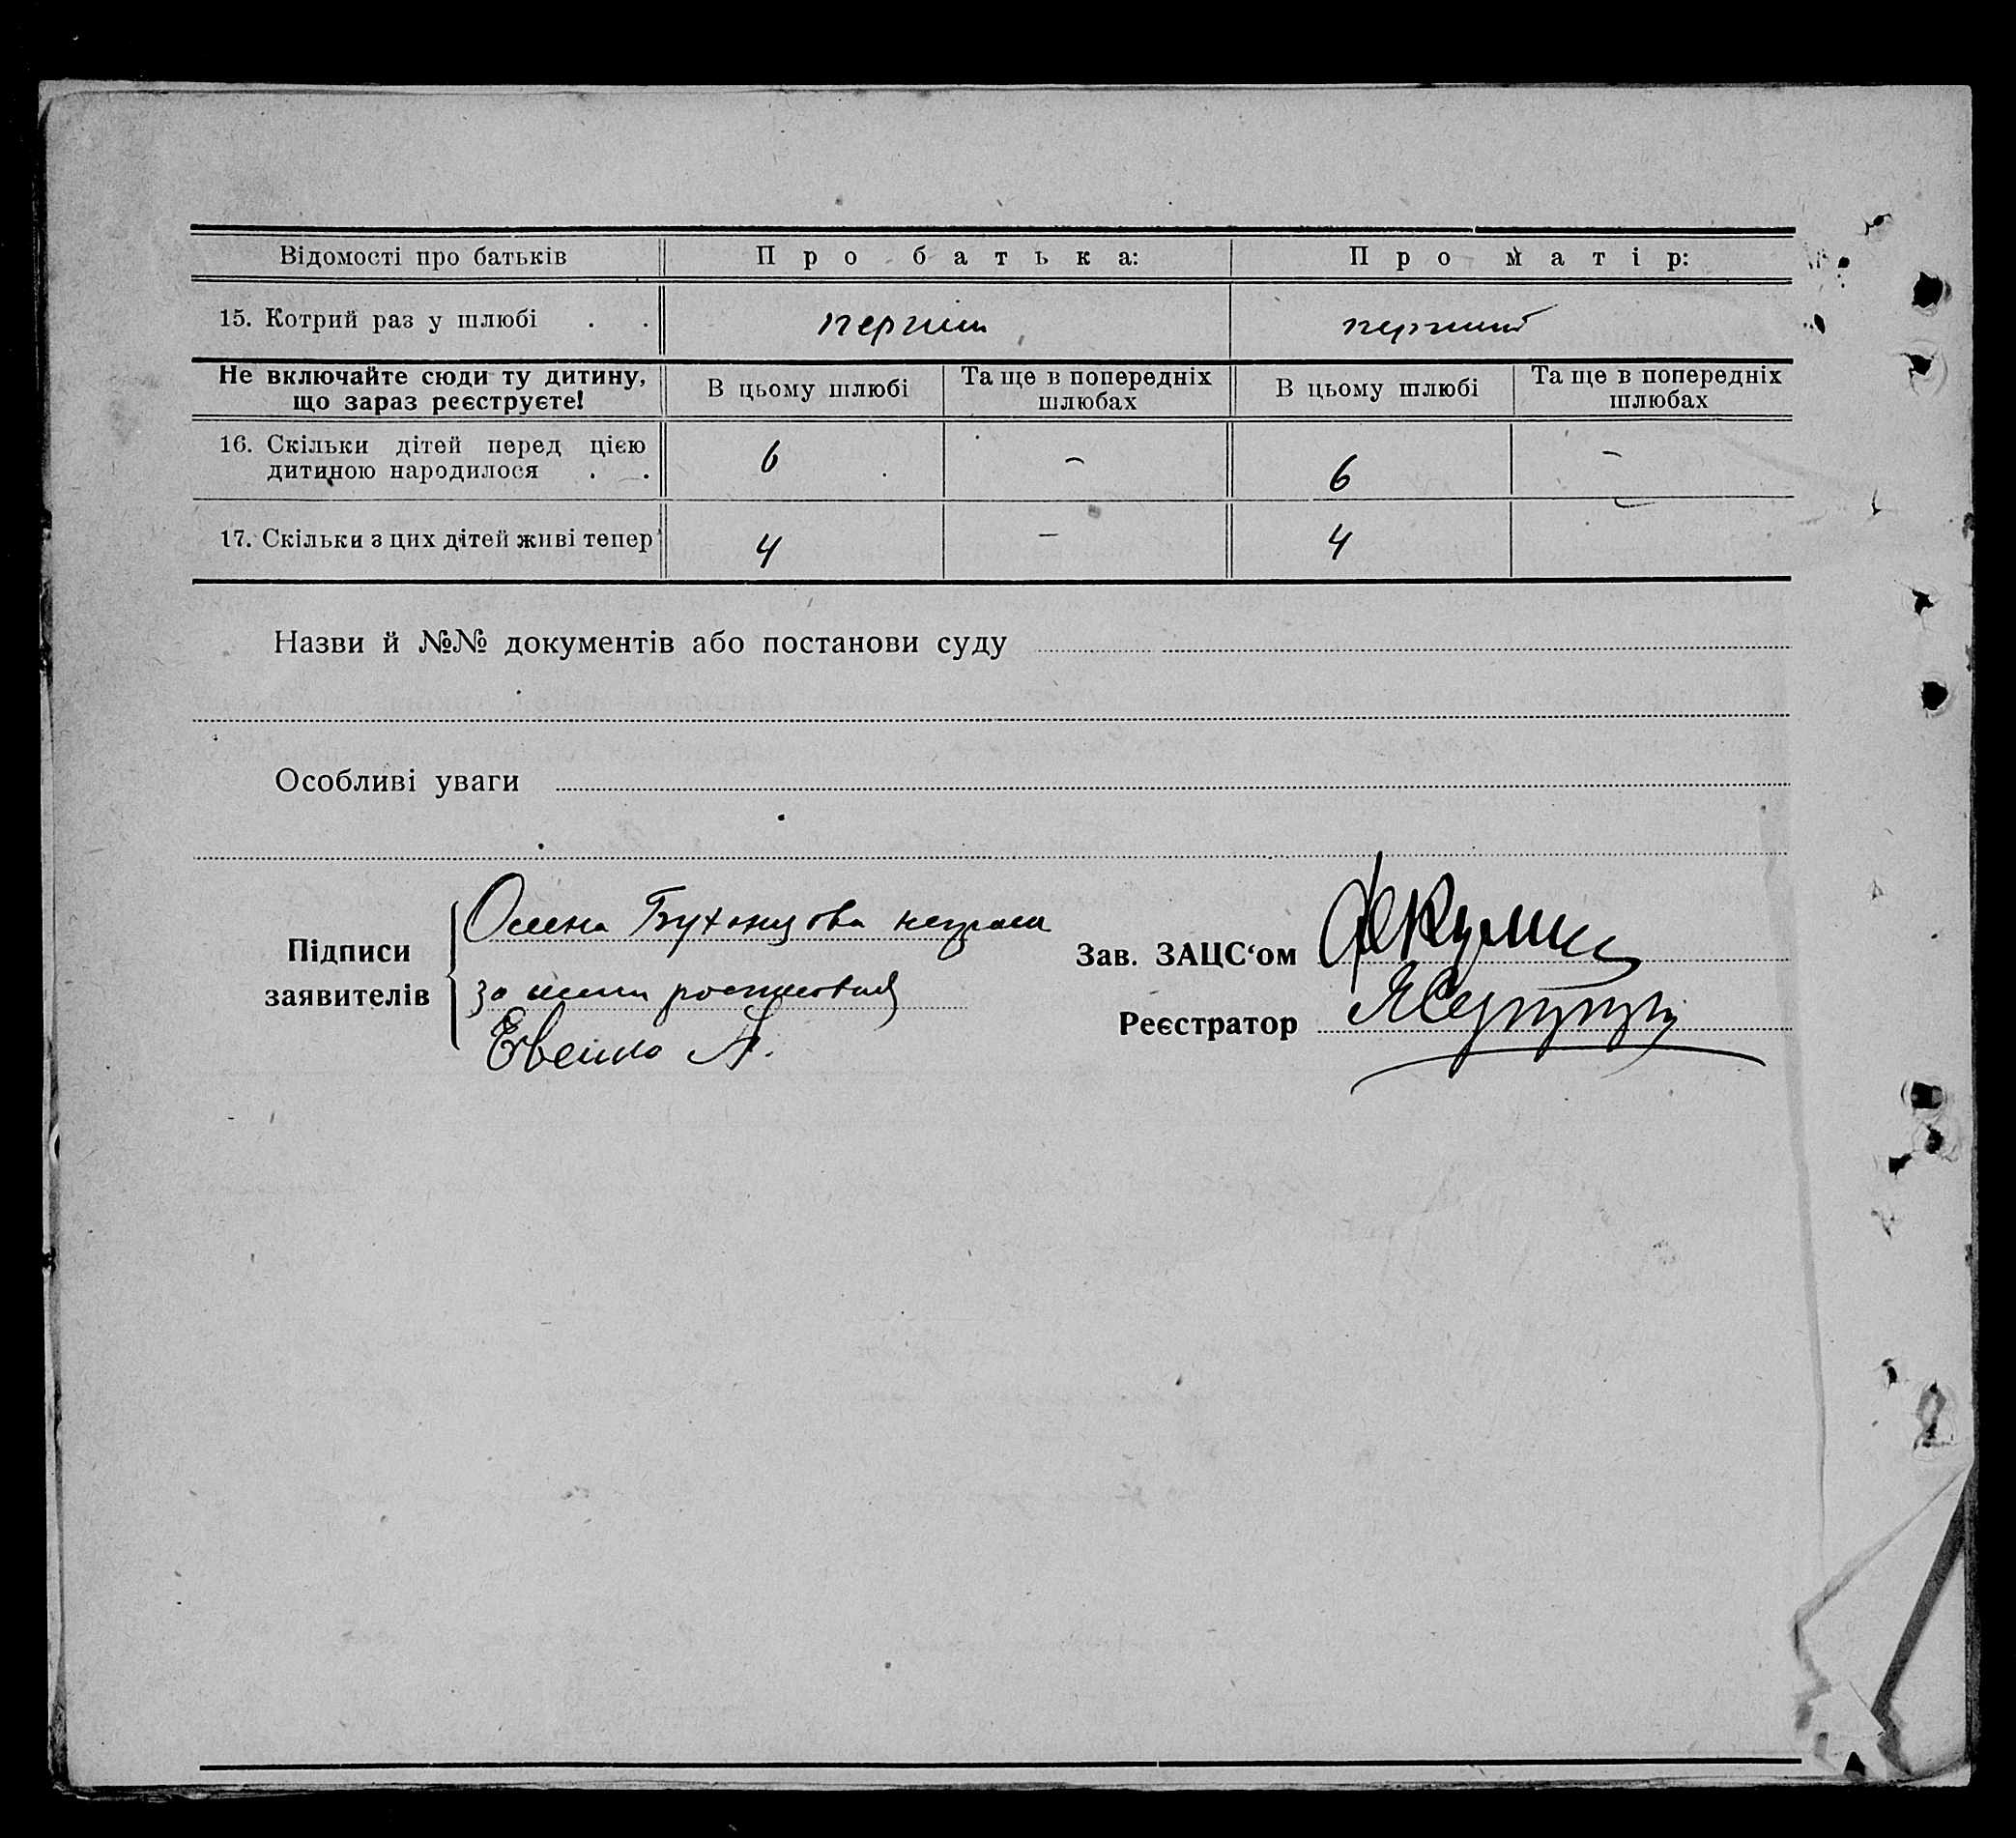 Відомості про батьків Про батька: Про матір:
15. Котрий раз у шлюбі . . перший перший
Не включайте сюди ту дитину, що зараз реєструєте!
В цьому шлюбі Та ще в попередніх шлюбах В цьому шлюбі Та ще в попередніх шлюбах
16. Скільки дітей перед цією
дитиною народилося . . 6 – 6 –
17. Скільки з цих дітей живі тепер 4 – 4
Назви й №№ документів або постанови суду
Особливі уваги
Підписи
заявителів
Олена
за
Зав. ЗАЦС‘ом
Реєстратор